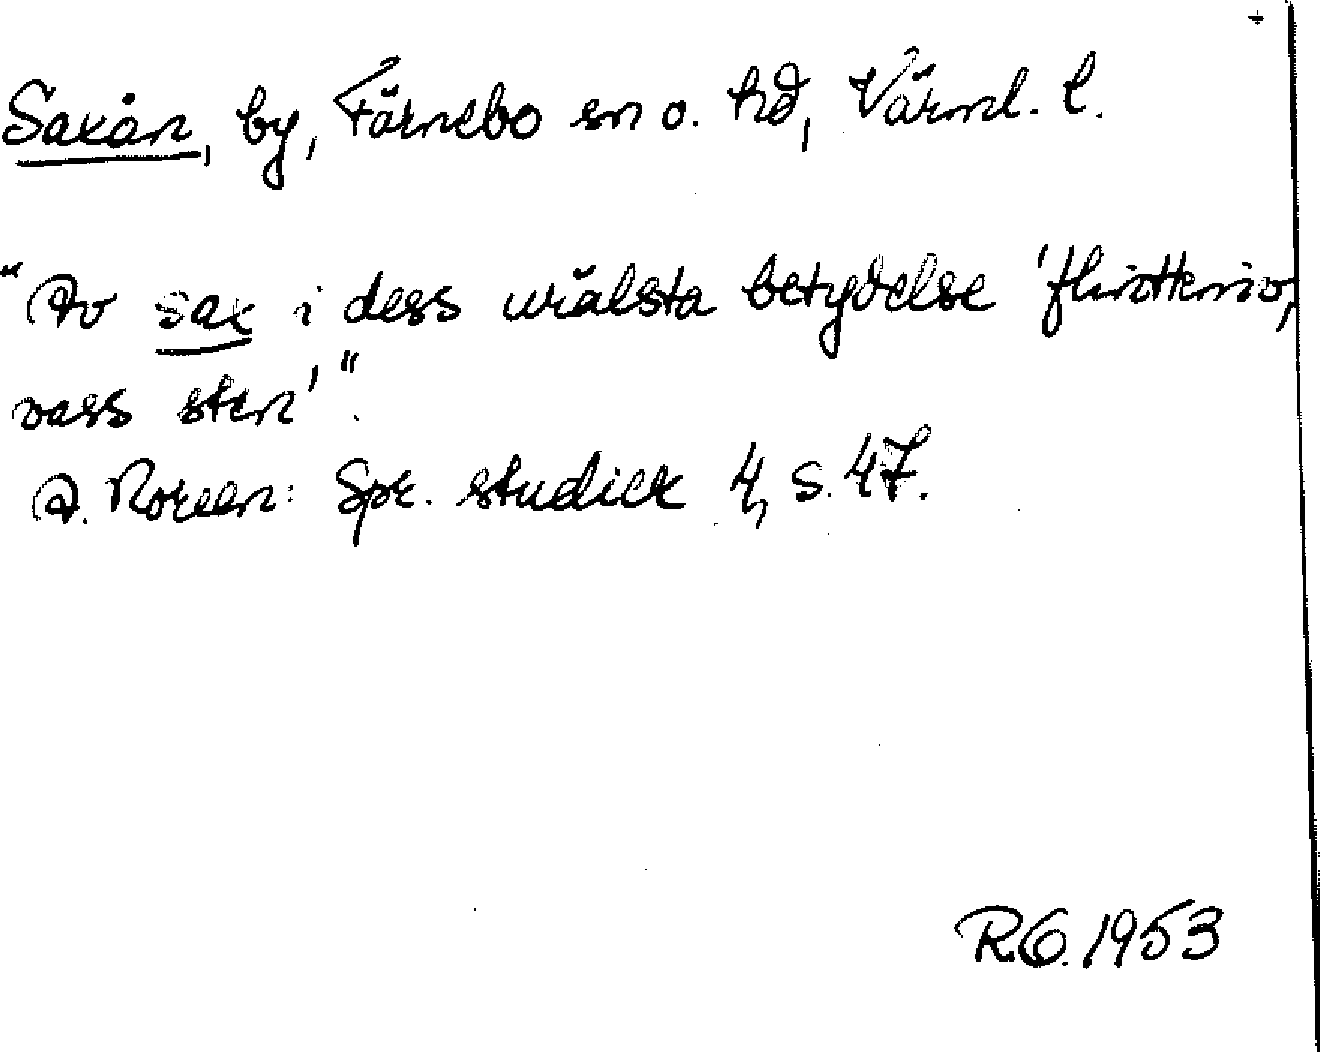 Saxån, by, Färnebo sn o. hd, Värml. l.
"Av sax i dess urälsta betydelse 'flintkniv,
vass sten'".
A. Noreen: Spr. studier 4, s. 47.
RO. 1953